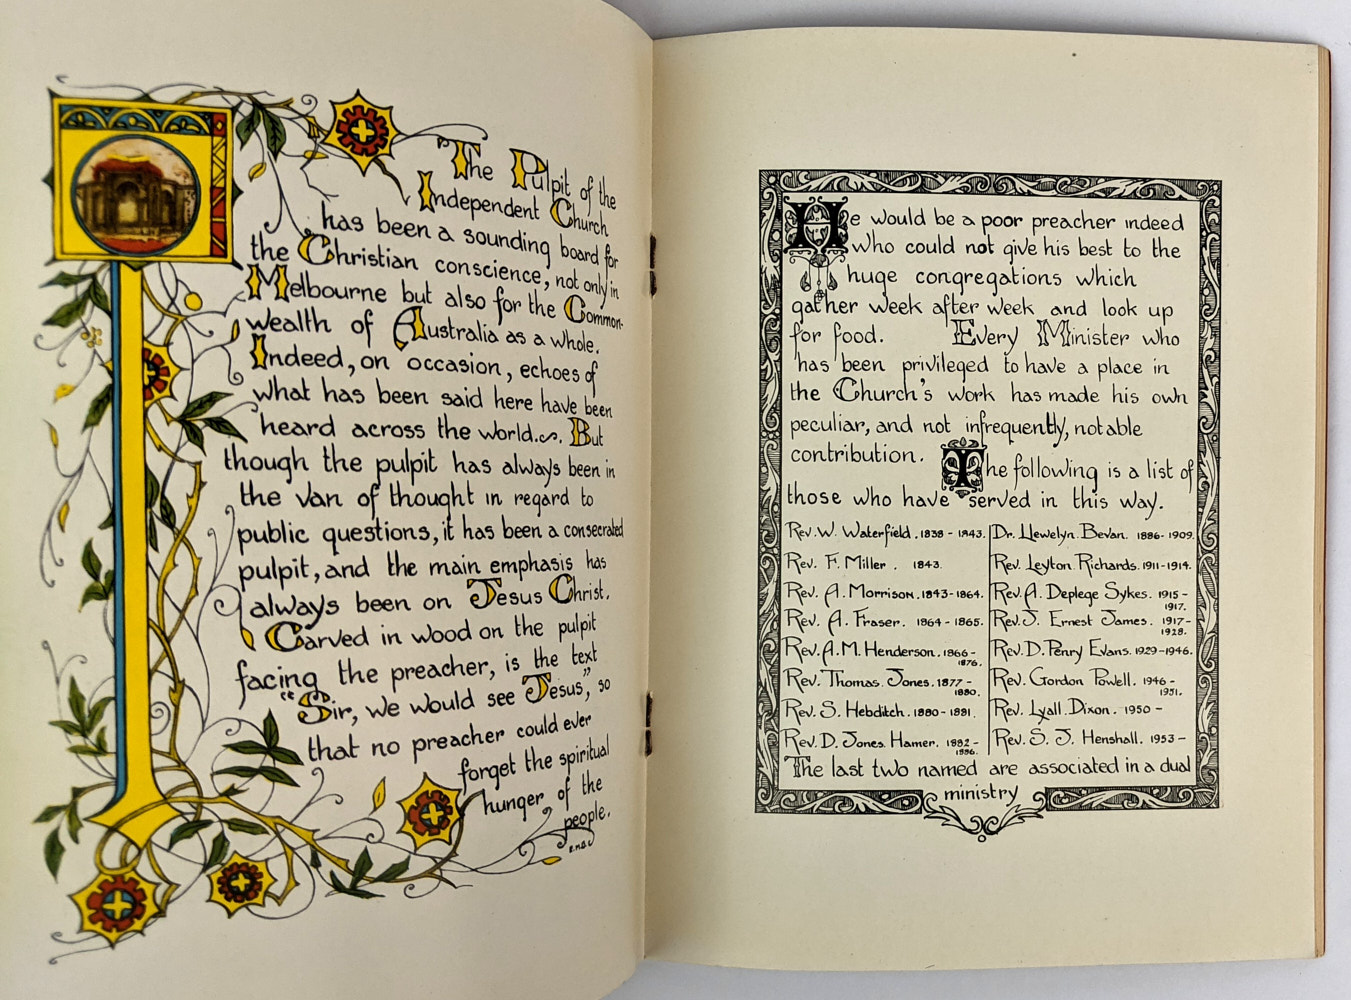 "The Pulpit of the
Independent Church
has been a sounding board for
the Christian conscience, not only in
Melbourne but also for the Common-
wealth of Australia as a whole.
Indeed, on occasion, echoes of
what has been said here have been
heard across the world. But
though the pulpit has always been in
the van of thought in regard to
public questions, it has been a consecrated
pulpit, and the main emphasis has
always been on Jesus Christ.
Carved in wood on the pulpit
facing the preacher, is the text
"Sir, we would see Jesus," so
that no preacher could ever
forget the spiritual
hunger of the
people.
He would be a poor preacher indeed
who could not give his best to the
huge congregations which
gather week after week and look up
for food. Every Minister who
has been privileged to have a place in
the Church's work has made his own
peculiar, and not infrequently, notable
contribution. The following is a list of
those who have served in this way.
Rev. W. Waterfield. 1838 - 1843.
Rev. F. Miller. 1843.
Rev. A. Morrison. 1843 - 1864.
Rev. A. Fraser. 1864 - 1865.
Rev. A. M. Henderson. 1866 - 1876.
Rev. Thomas Jones. 1877 - 1880.
Rev. S. Hebditch. 1880 - 1881.
Rev. D. Jones Hamer. 1882 - 1886.
Dr. Llewelyn Bevan. 1886 - 1909.
Rev. Leyton Richards. 1911 - 1914.
Rev. A. Deplege Sykes. 1915 - 1917.
Rev. J. Ernest James. 1917 - 1928.
Rev. D. Penry Evans. 1929 - 1946.
Rev. Gordon Powell. 1946 - 1951.
Rev. Lyall Dixon. 1950 -
Rev. S. J. Henshall. 1953 -
The last two named are associated in a dual
ministry